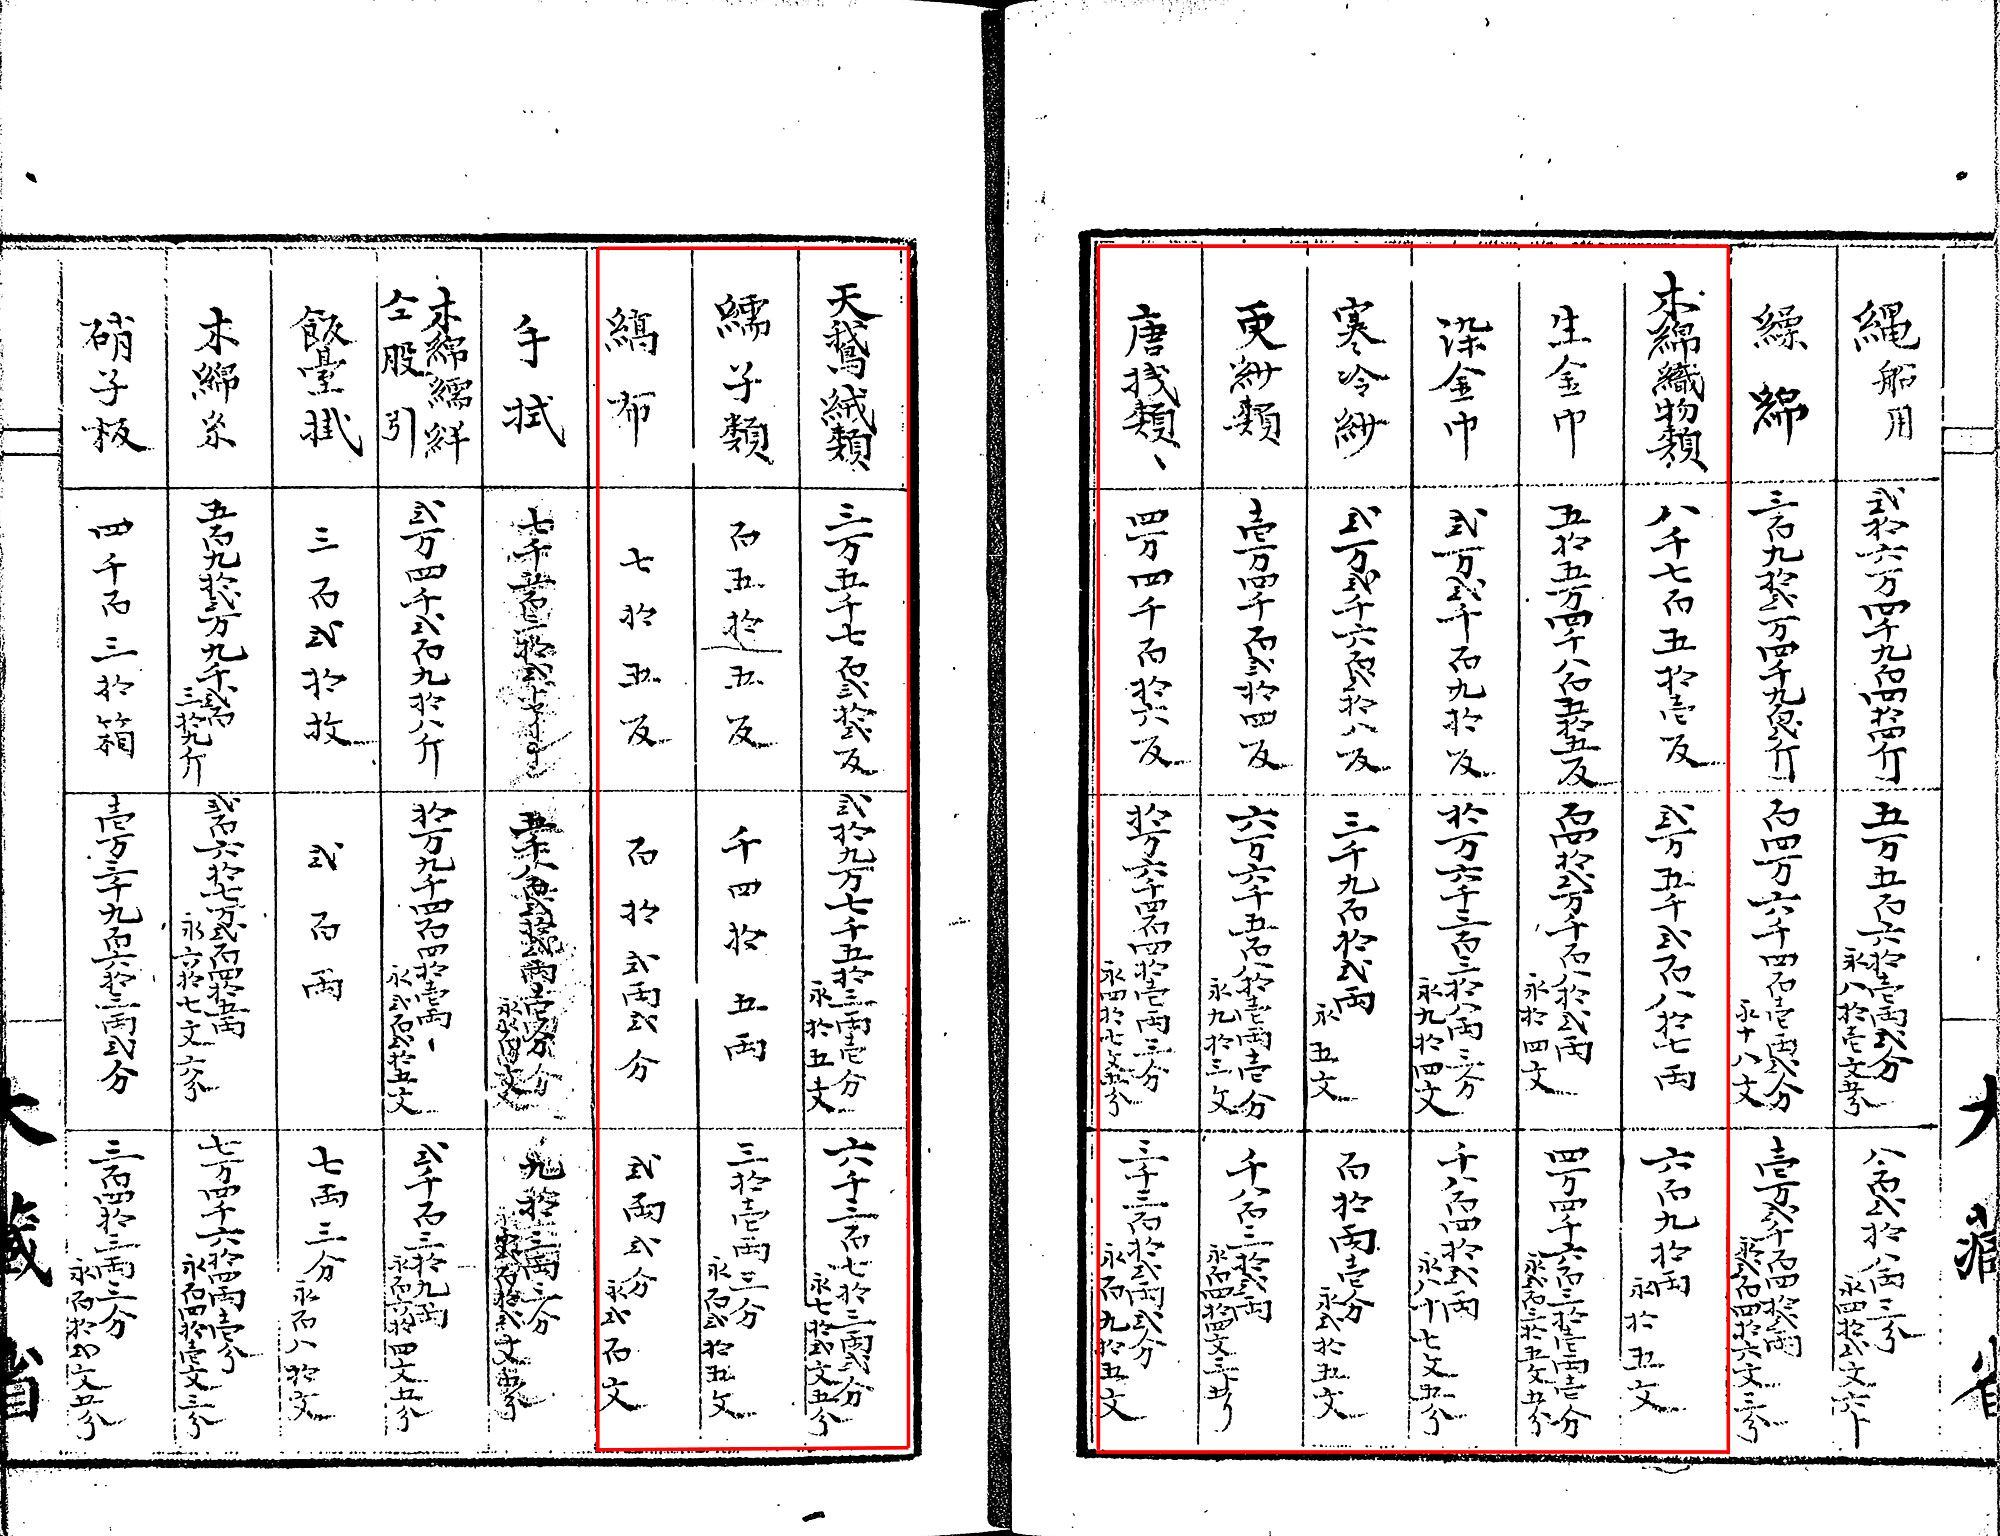 縄船用
弐拾六万四千九百四拾四斤
五万五百六拾壱両弐分
永八拾壱文五分
八百弐拾八両三分
永四拾弐文六分
繰綿
三百九拾弐万四千九百弐斤
百四万六千四百壱両弐分
永十八文
壱万弐千百四拾両
永弐百四拾六文三分
木綿織物類
八千七百五拾壱反
弐万五千弐百八拾七両
六百九拾両
永拾五文
生金巾
五拾五万四千八百五拾五反
百四拾弐万千百八拾弐両
永拾四文
四万四千六百三拾壱両壱分
永弐百三拾五文五分
染金巾
弐万弐千百九拾反
拾万六千三百三拾八両三分
永九拾四文
千八百四拾弐両
永八十七文五分
寒冷紗
弐万弐千六百弐拾八反
三千九百拾弐両
永五文
百拾両壱分
永弐拾五文
更紗類
壱万四千百弐拾四反
六万六千五百八拾壱両壱分
永九拾三文
千八百三拾弐両
永百四拾四文三分
唐桟類
四万四千百拾六反
拾万六千四百四拾壱両三分
永四拾七文五分
三千三百拾弐両弐分
永百九拾五文
天鵞絨類
三万五千七百弐拾弐反
弐拾九万七千五拾三両壱分
永拾五文
六千三百七拾三両弐分
永七拾弐文五分
繻子類
百五拾五反
千四拾五両
三拾壱両三分
永百弐拾五文
縞布
七拾五反
百拾弐両弐分
弐両弐分
永弐百文
手拭
九拾三両三分
木綿繻絆
仝股引
弐万四千弐百九拾八斤
拾万九千四百四拾壱両
永弐百弐拾五文
弐千百三拾九両
永百六拾四文五分
飯臺掛
三百弐拾枚
弐百両
七両三分
永百八拾文
木綿糸
五百九拾弐万九千弐百
三拾九斤
弐百六拾七万弐百四拾五両
永六拾七文六分
七万四千六拾四両壱分
永百四拾壱文三分
硝子板
四千百三拾箱
壱万三千九百六拾三両弐分
三百四拾三両三分
永百拾弐文五分
大藏省
大藏省